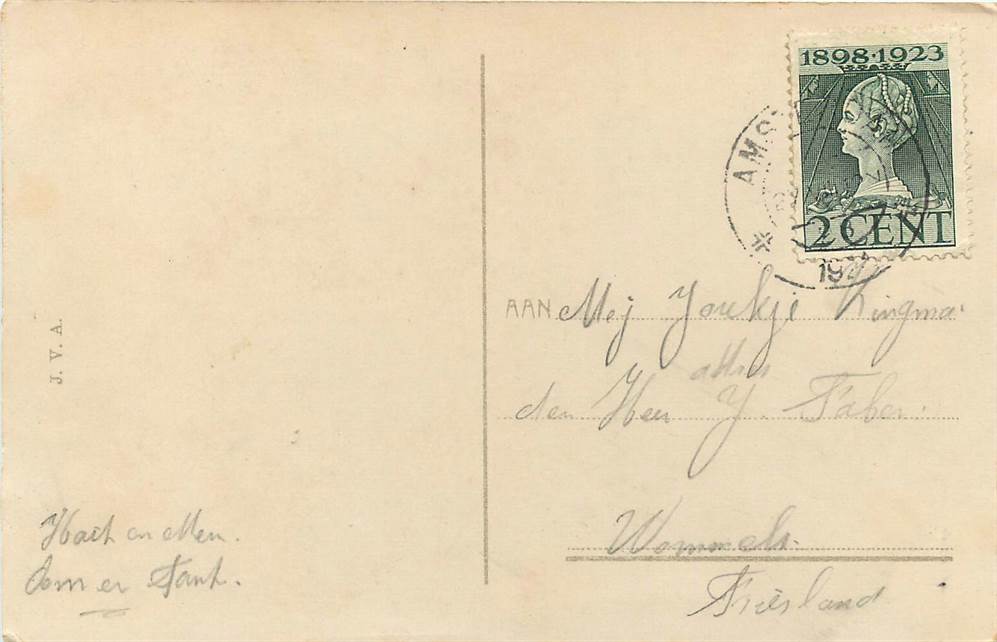 1898·1923
2 CENT
AMST
19
AAN Mej Joukje Kingma.
adres
den Heer Y. Faber.
Wommels.
Friesland
J. V. A.
Hait en Mem.
Oom en Tant.